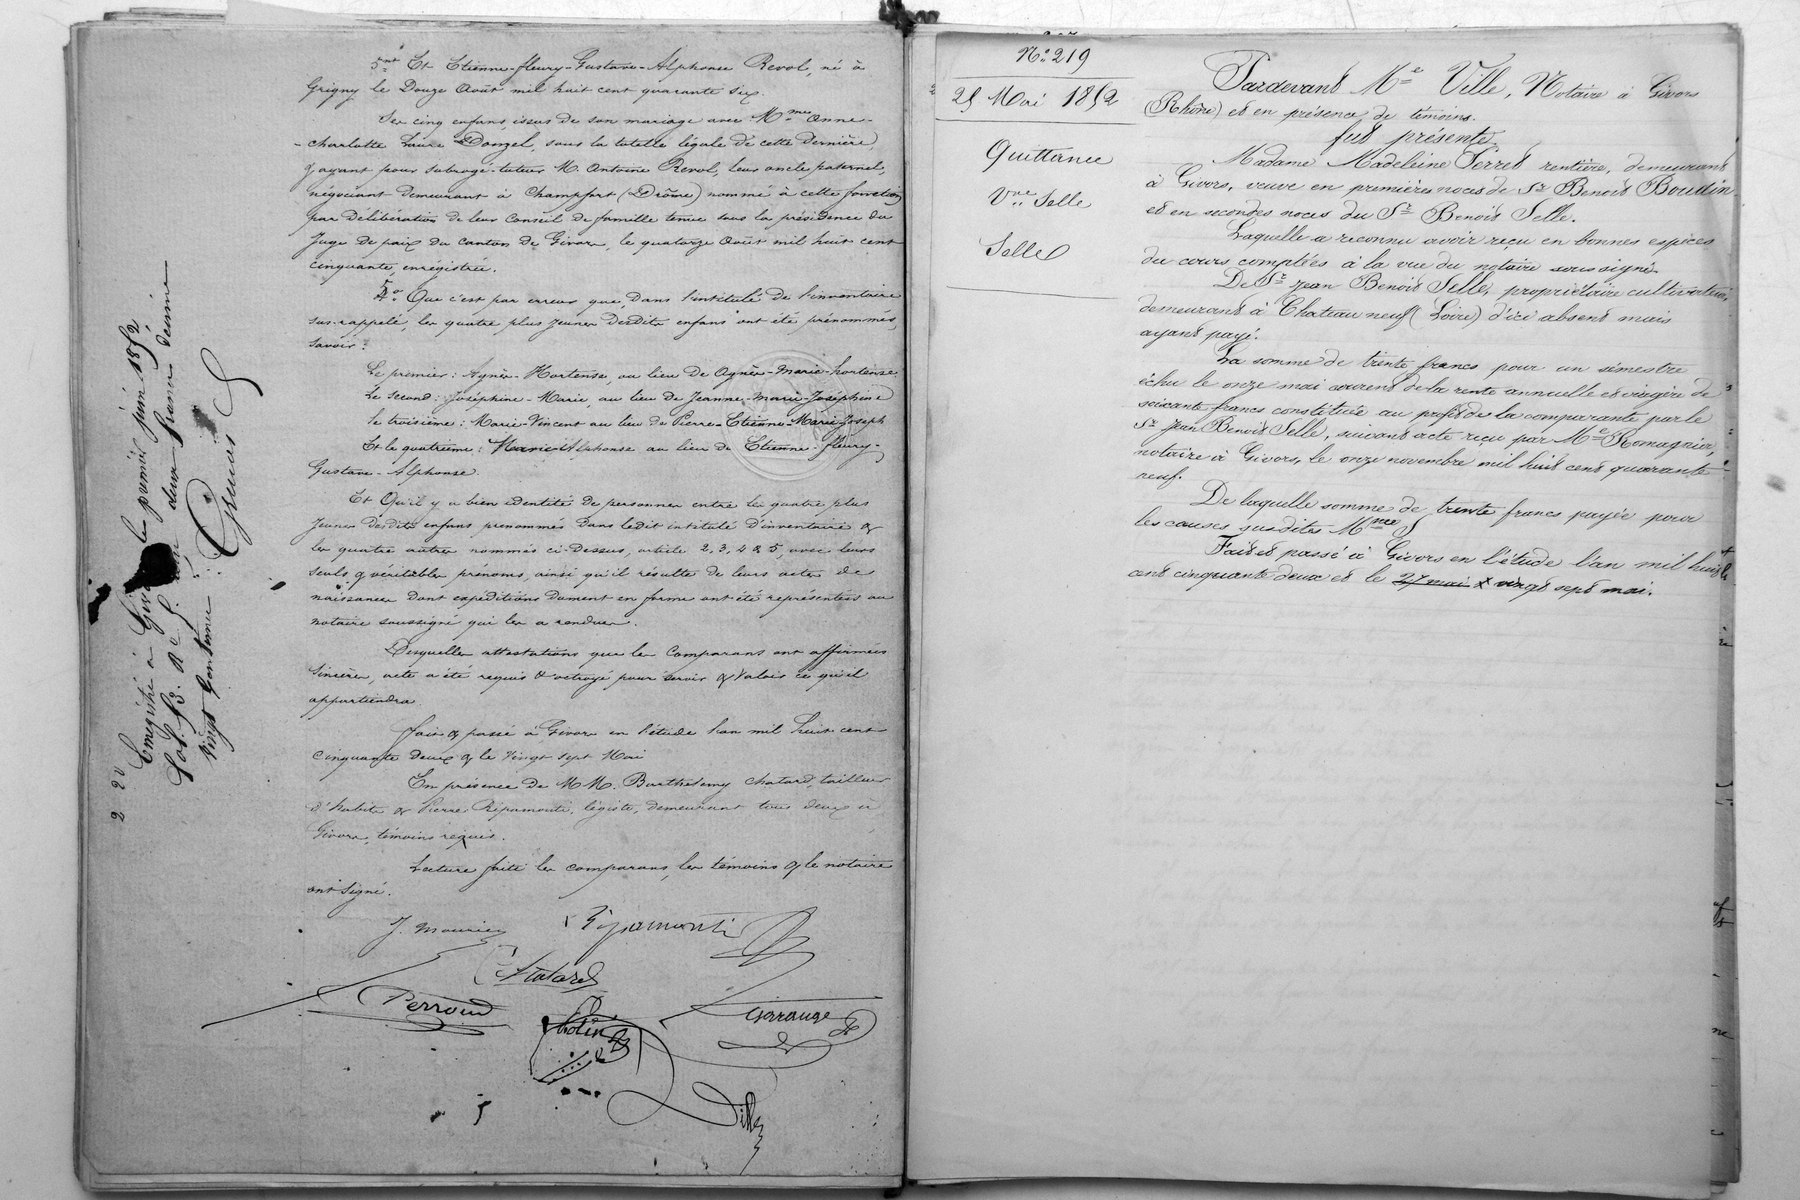 5ent Et Etienne-fleury-Gustave-Alphonse Revol, né à
Grigny le Douze Août mil huit cent quarante six.
Ses cinq enfants, issus de son mariage avec Mme Anne-
-Charlotte Laure Donzel, sous la tutelle légale de cette dernière,
& ayant pour subrogé-tuteur M. Antoine Revol, leur oncle paternel,
négociant demeurant à Champfort (Drôme) nommé à cette fonction
par Délibération de leur Conseil de famille tenue sous la présidence du
Juge de paix du canton de Givors, le quatorze Août mil huit cent
cinquante, enrégistrée.
5o Que c'est par erreur que, dans l'intitulé de l'inventaire
sus-rappelé, les quatre plus jeunes desdits enfans ont été prénommés
savoir :
Le premier : Agnès-Hortense, au lieu de Agnès-Marie-hortense
Le second : Joséphine-Marie, au lieu de Jeanne-Marie-Joséphine
le troisième : Marie-Vincent au lieu de Pierre-Etienne-Marie-Joseph
Et le quatrième : Alphonse au lieu de Etienne-fleury-
Gustave-Alphonse.
Et Qu'il y a bien identité de personnes entre les quatre plus
jeunes desdits enfans prenommés dans ledit intitulé d'inventaire &
les quatre autres nommés ci-dessus, article 2, 3, 4 & 5, avec leurs
seuls & véritables prénoms, ainsi qu'il résulte de leurs actes de
naissance dont expéditions dument en forme ont été représentées au
notaire soussigné qui les a rendues.
Desquelles attestations que les Comparans ont affirmées
sincères, acte a été requis & octroyé pour servir & valoir ce qu'il
appartiendra.
fait & passé à Givors en l'étude l'an mil huit cent
cinquante deux & le vingt sept Mai
En présence de M.M. Barthelemy Chatard, tailleur
d'habits & Pierre Ripamonti, légiste, demeurant tous deux à
Givors, témoins requis.
Lecture faite les comparans, les témoins & le notaire
ont signé.
J. Mourier
Ripamonti
Chatard
Perroud
Garrange
Ville
Enregistré à Givors le premier juin 1852
vingt centimes
2 20
No 219
27 Mai 1852
Quittance
Vve Selle
Selle
Pardevant Me Ville, Notaire à Givors
(Rhône) et en présence de témoins.
fut présente,
Madame Madeleine Perret rentière, demeurant
à Givors, veuve en premières noces de Sr Benoit Bouttin
et en secondes noces du Sr Benoit Selle.
Laquelle a reconnu avoir reçu en bonnes espèces
du cours comptées à la vue du notaire soussigné.
De Sr Jean Benoit Selle, propriétaire cultivateur,
demeurant à Chateauneuf (Loire) d'ici absent mais
ayant payé.
La somme de trente francs pour un sémestre
échu le onze mai courent de la rente annuelle et viagère de
soixante francs constituée au profit de la comparante par le
Sr Jean Benoit Selle, suivant acte reçu par Me Romagnier,
notaire à Givors, le onze novembre mil huit cent quarante
neuf.
De laquelle somme de trente francs payée pour
les causes susdites Mme S
Fait et passé à Givors en l'étude l'an mil huit
cent cinquante deux et le 27 mai x vingt sept mai.